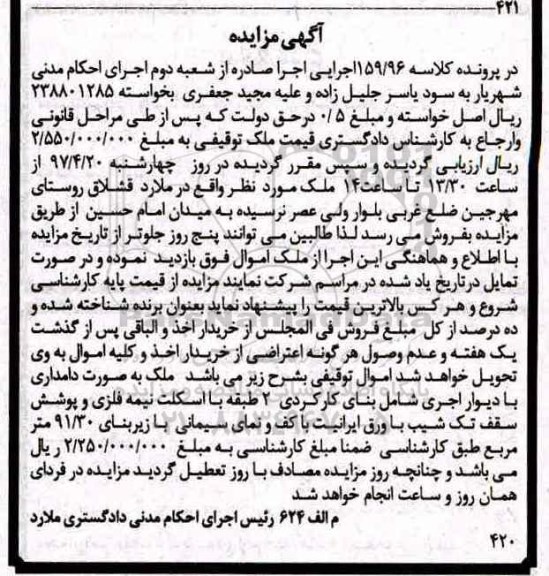 ۴۲۱
آگهی مزایده
در پرونده کلاسه ۱۵۹/۹۶اجرایی اجرا صادره از شعبه دوم اجرای احکام مدنی
شهریار به سود یاسر جلیل زاده و علیه مجید جعفری بخواسته ۲۳۸۸۰۱۲۸۵
ریال اصل خواسته و مبلغ ۰/۵ درحق دولت که پس از طی مراحل قانونی
وارجاع به کارشناس دادگستری قیمت ملک توقیفی به مبلغ ۲/۵۵۰/۰۰۰/۰۰۰
ریال ارزیابی گردیده و سپس مقرر گردیده در روز چهارشنبه ۹۷/۴/۲۰ از
ساعت ۱۳/۳۰ تا ساعت۱۴ ملک مورد نظر واقع در ملارد قشلاق روستای
مهرجین ضلع غربی بلوار ولی عصر نرسیده به میدان امام حسین از طریق
مزایده بفروش می رسد لذا طالبین می توانند پنج روز جلوتر از تاریخ مزایده
با اطلاع و هماهنگی این اجرا از ملک اموال فوق بازدید نموده و در صورت
تمایل در تاریخ یاد شده در مراسم شرکت نمایند مزایده از قیمت پایه کارشناسی
شروع و هر کس بالاترین قیمت را پیشنهاد نماید بعنوان برنده شناخته شده و
ده درصد از کل مبلغ فروش فی المجلس از خریدار اخذ و الباقی پس از گذشت
یک هفته و عدم وصول هر گونه اعتراضی از خریدار اخذ و کلیه اموال به وی
تحویل خواهد شد اموال توقیفی بشرح زیر می باشد ملک به صورت دامداری
با دیوار اجری شامل بنای کارکردی ۲ طبقه با اسکلت نیمه فلزی و پوشش
سقف تک شیب با ورق ایرانیت با کف و نمای سیمانی با زیربنای ۹۱/۳۰ متر
مربع طبق کارشناسی ضمنا مبلغ کارشناسی به مبلغ ۲/۲۵۰/۰۰۰/۰۰۰ ریال
می باشد و چنانچه روز مزایده مصادف با روز تعطیل گردید مزایده در فردای
همان روز و ساعت انجام خواهد شد
م الف ۶۲۴ رئیس اجرای احکام مدنی دادگستری ملارد
۴۲۰